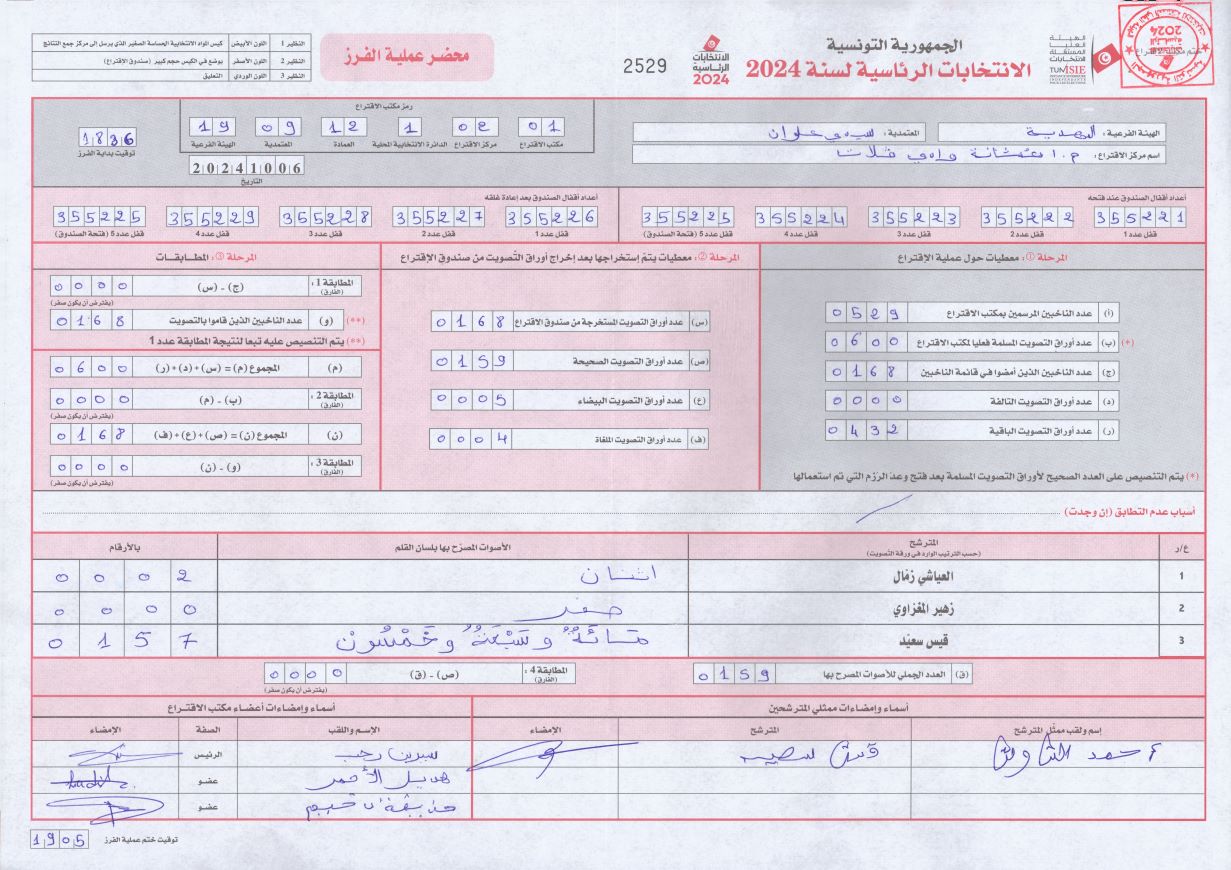 الجمهورية التونسية
الانتخابات الرئاسية لسنة 2024
الهيئة العليا المستقلة للانتخابات
TUNISIE
الانتخابات الرئاسية 2024
2529
محضر عملية الفرز
النظير 1 اللون الأبيض كيس المواد الانتخابية الحساسة الصغير الذي يرسل إلى مركز جمع النتائج
النظير 2 اللون الأصفر يوضع في الكيس حجم كبير (صندوق الإقتراع)
النظير 3 اللون الوردي التعليق
الهيئة الفرعية: المهدية
المعتمدية: سيدي علوان
اسم مركز الإقتراع: م.ا
رمز مكتب الاقتراع
01 02 1 12 09 19
مكتب الاقتراع مركز الاقتراع الدائرة الانتخابية المحلية العمادة المعتمدية الهيئة الفرعية
20241006
التاريخ
1836
توقيت بداية الفرز
أعداد أقفال الصندوق عند فتحه
355221 355222 355223 355224 355225
قفل عدد 1 قفل عدد 2 قفل عدد 3 قفل عدد 4 قفل عدد 5 (فتحة الصندوق)
أعداد أقفال الصندوق بعد إعادة غلقه
355226 355227 355228 355229 355225
قفل عدد 1 قفل عدد 2 قفل عدد 3 قفل عدد 4 قفل عدد 5 (فتحة الصندوق)
المرحلة ①: معطيات حول عملية الإقتراع
(أ) عدد الناخبين المرسمين بمكتب الاقتراع 0529
(*) (ب) عدد أوراق التصويت المسلمة فعليا لمكتب الاقتراع 0600
(ج) عدد الناخبين الذين أمضوا في قائمة الناخبين 0168
(د) عدد أوراق التصويت التالفة 0000
(ر) عدد أوراق التصويت الباقية 0432
(*) يتم التنصيص على العدد الصحيح لأوراق التصويت المسلمة بعد فتح وعد الرزم التي تم استعمالها
المرحلة ②: معطيات يتم إستخراجها بعد إخراج أوراق التصويت من صندوق الإقتراع
(س) عدد أوراق التصويت المستخرجة من صندوق الاقتراع 0168
(ص) عدد أوراق التصويت الصحيحة 0159
(ع) عدد أوراق التصويت البيضاء 0005
(ف) عدد أوراق التصويت الملغاة 0004
المرحلة ③: المطابقات
المطابقة 1: (الفارق) (ج) - (س) 0000
(يفترض أن يكون صفر)
(**) (و) عدد الناخبين الذين قاموا بالتصويت 0168
(**) يتم التنصيص عليه تبعا لنتيجة المطابقة عدد 1
(م) المجموع (م) = (س) + (د) + (ر) 0600
المطابقة 2: (الفارق) (ب) - (م) 0000
(يفترض أن يكون صفر)
(ن) المجموع (ن) = (ص) + (ع) + (ف) 0168
المطابقة 3: (الفارق) (و) - (ن) 0000
(يفترض أن يكون صفر)
أسباب عدم التطابق (إن وجدت)
ع/ر المترشح الأصوات المصرّح بها بلسان القلم بالأرقام
(حسب الترتيب الوارد في ورقة التصويت)
1 العياشي زمّال اثنان 0002
2 زهير المغزاوي صفر 0000
3 قيس سعيّد مائة وسبعة وخمسون 0157
(ق) العدد الجملي للأصوات المصرح بها 0159
المطابقة 4: (الفارق) (ص) - (ق) 0000
(يفترض أن يكون صفر)
أسماء وإمضاءات ممثلي المترشحين
إسم ولقب ممثّل المترشح المترشح الإمضاء
أحمد الشاوش قيس سعيد
أسماء وإمضاءات أعضاء مكتب الاقتراع
الإسم واللقب الصفة الإمضاء
سيرين رجب الرئيس
هديل الأحمر عضو
عضو
توقيت ختم عملية الفرز 1905